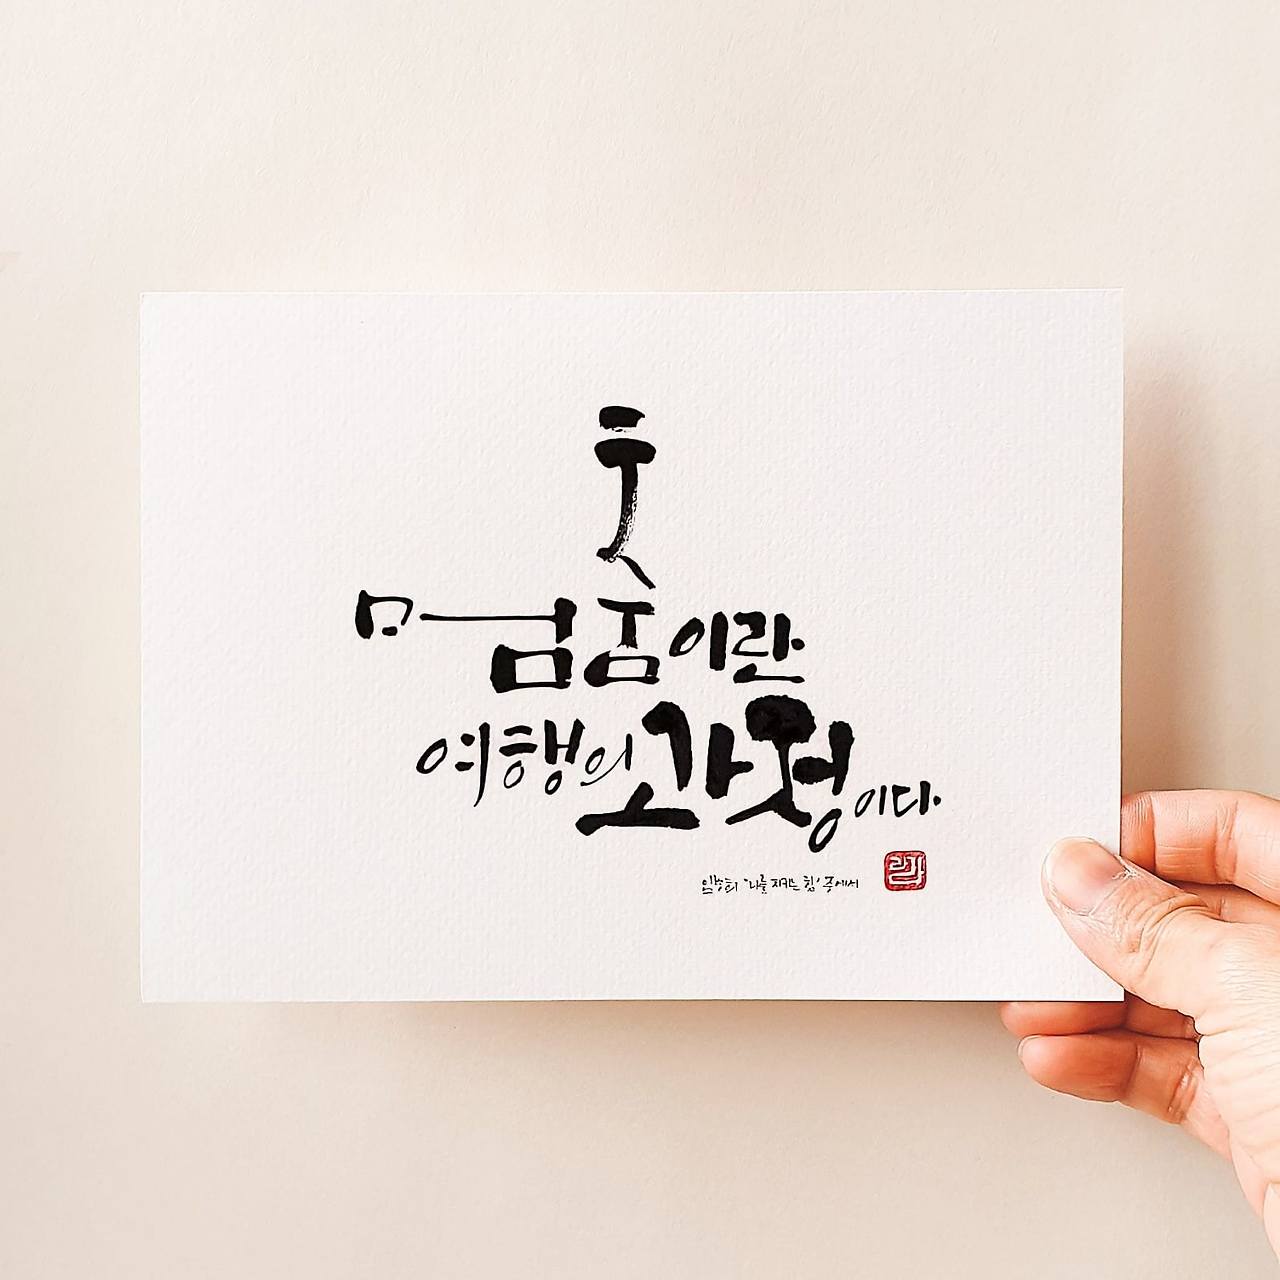 멈춤이란
여행의 과정이다.
임승희 '나를 지키는 힘' 중에서